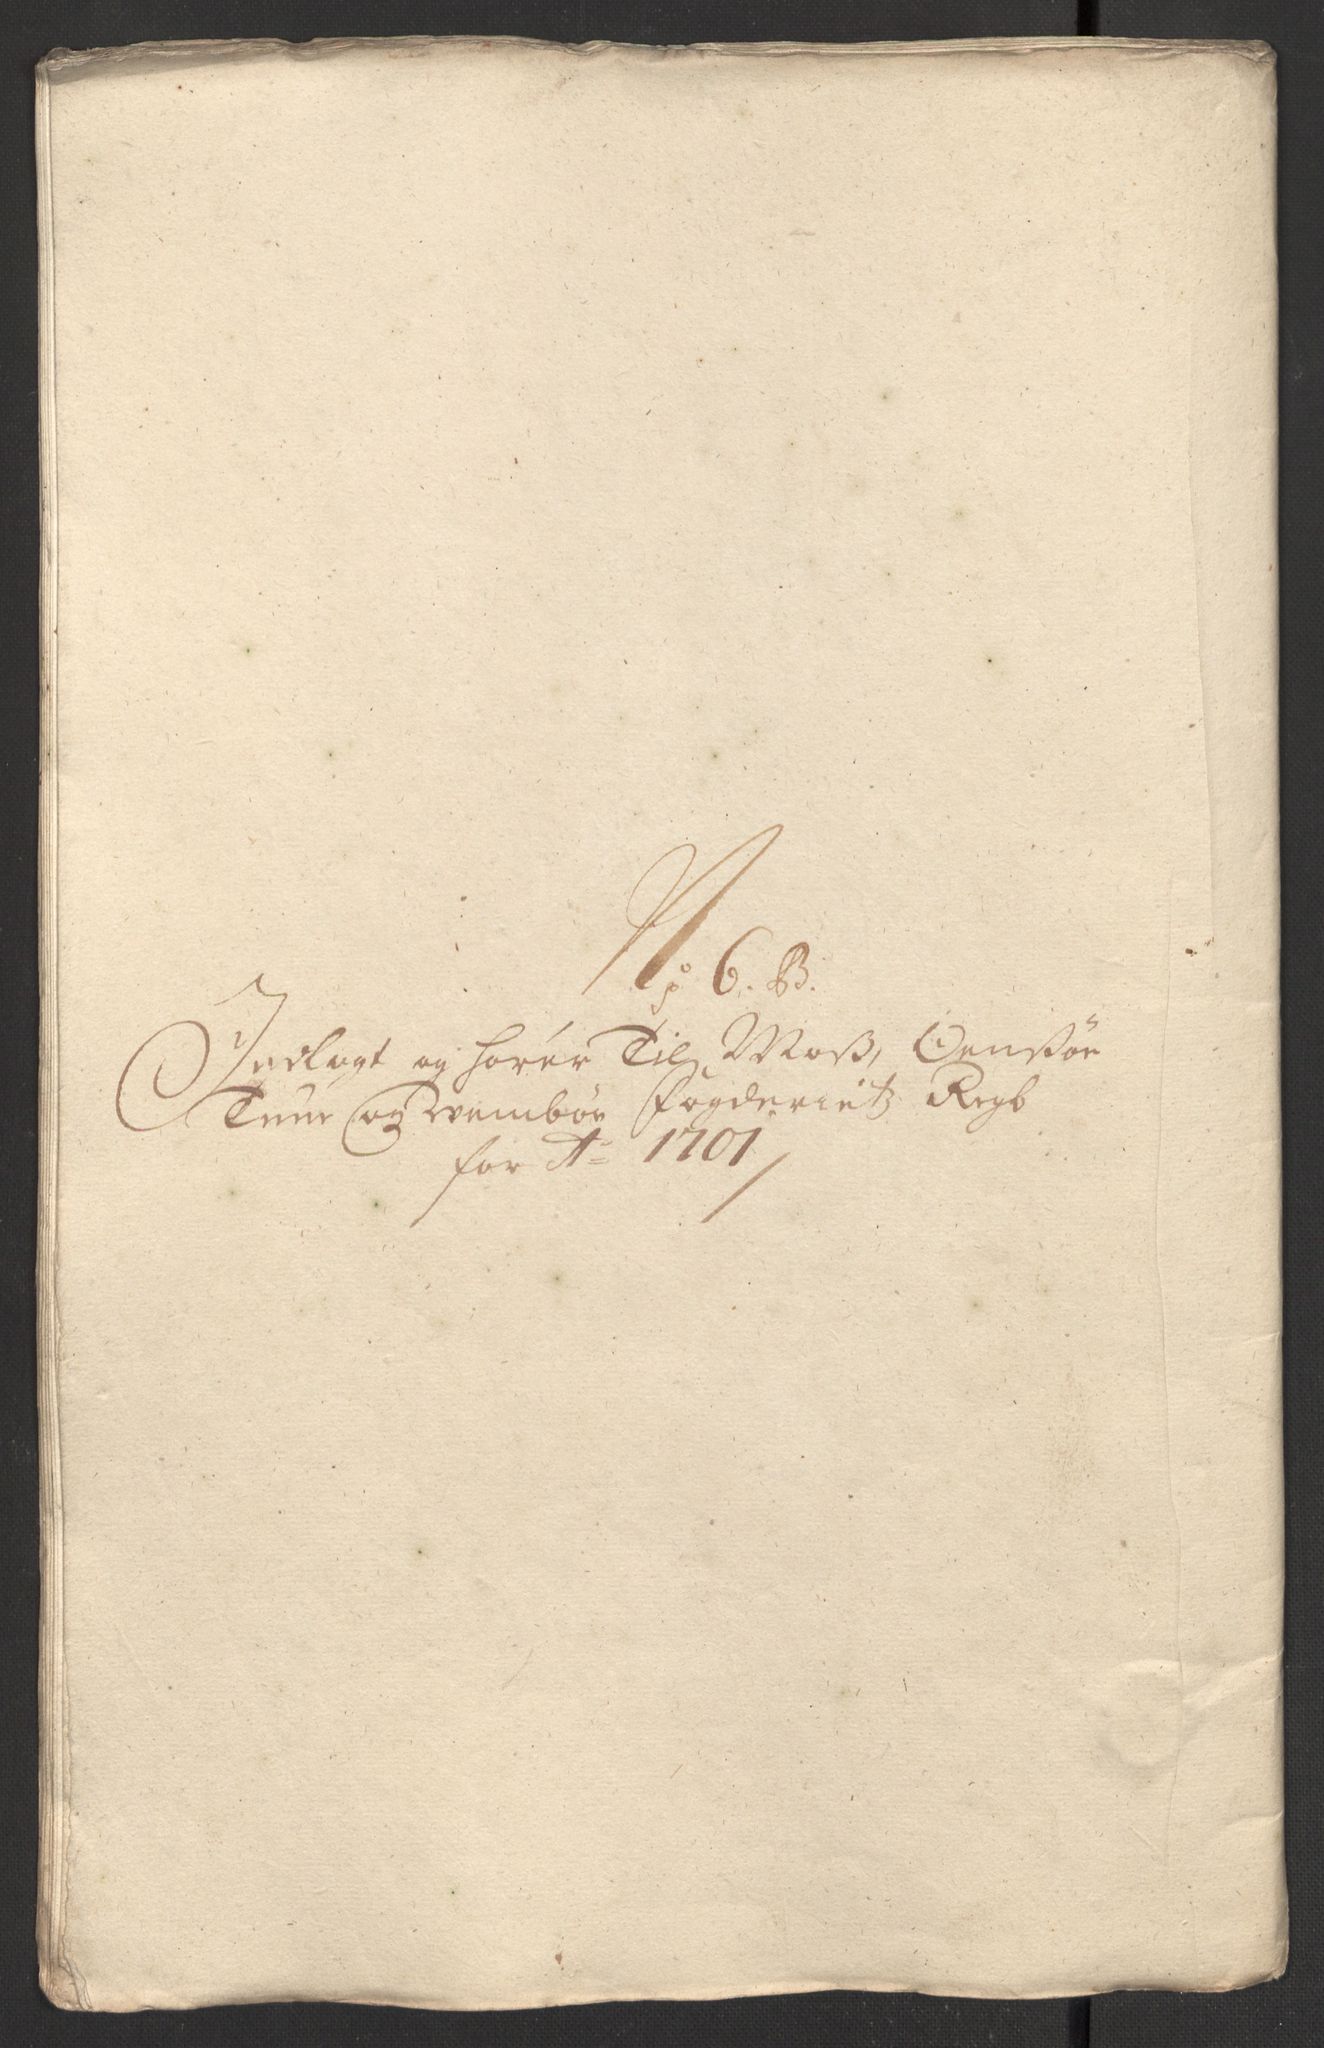 No 6. B.
Indlagt og hører Til Moß, Onsøe
Tune og Wembøe Fogderietz Regb
for Ao 1701